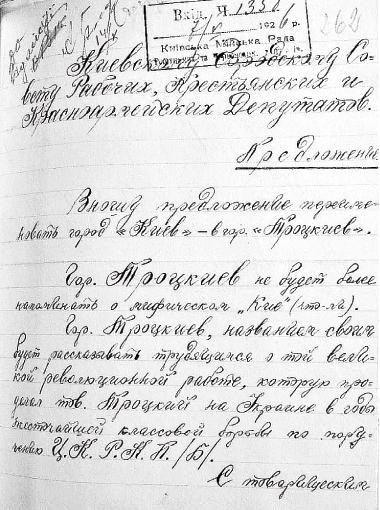 Вхід. Ч. 1330
1926 р.
Київська Міська Рада
262
Киевскому Городскому Со-
вету Рабочих, Крестьянских и
Красноармейских Депутатов.
Предложение
Вношу предложение переиме-
новать город «Киев» – в гор. «Троцкиев».
Гор. Троцкиев не будет более
напоминать о мифическом „Кие" (что-ли).
Гор. Троцкиев, названием своим
будет рассказывать трудящимся о той вели-
кой революционной работе, которую про-
делал тов. Троцкий на Украине в годы
жесточайшей классовой борьбы по пору-
чению Ц.К. Р.К.П. /Б/.
С товарищеским